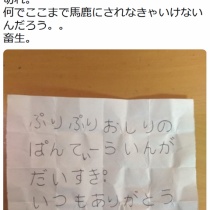 何でここまで馬鹿にされなきゃいけない
んだろう。。
畜生。
ぷりぷりおしりの
ぱんてぃーういんが
だいすき。
いつもありがとう